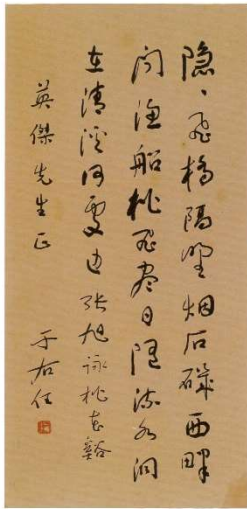 隱〻飛橋隔野烟石磯西畔
問漁船桃花盡日隨流水洞
在清溪何處邊 張旭詠桃花谿
英傑先生正
于右任